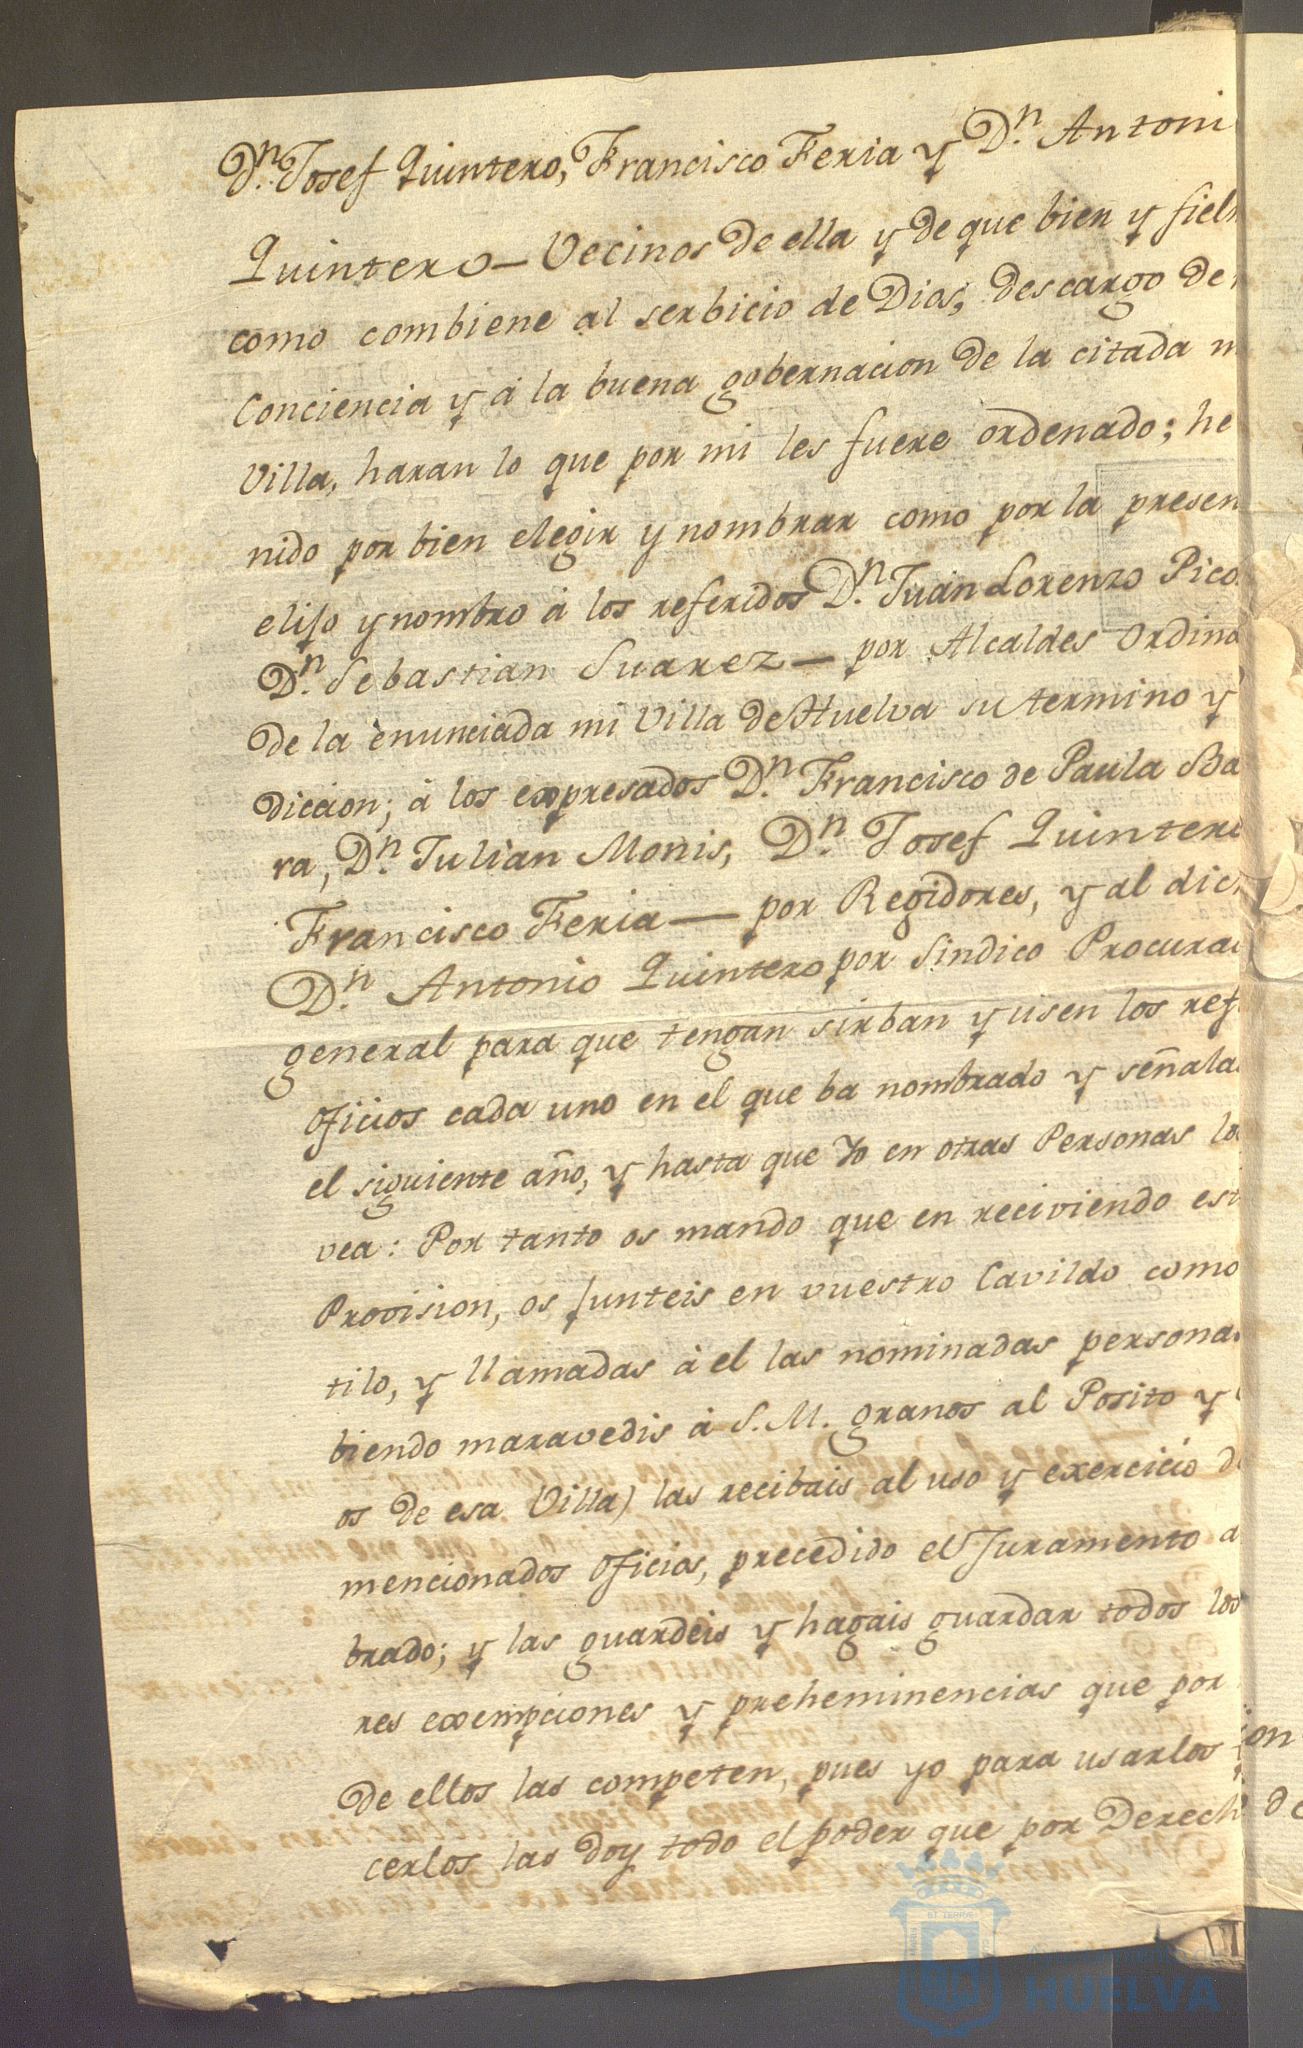 Dn. Josef Quintero, Francisco Feria y Dn. Antoni
Quintero — Vecinos de ella y de que bien y fielm
como combiene al serbicio de Dios, descargo de
Conciencia y á la buena gobernacion de la citada m
Villa, haran lo que por mi les fuere ordenado; he
nido por bien elegir y nombrar como por la presen
elijo y nombro á los referidos Dn. Juan Lorenzo Pico
Dn. Sebastian Suarez — por Alcaldes Ordina
de la enunciada mi Villa de Huelva su termino y
diccion; á los expresados Dn. Francisco de Paula Ba
ra, Dn. Julian Monis, Dn. Josef Quintero
Francisco Feria — por Regidores, y al dich
Dn. Antonio Quintero por Sindico Procurad
general para que tengan sirban y usen los refe
oficios cada uno en el que ba nombrado y señalad
el siguiente año, y hasta que Yo en otras Personas lo
vea: Por tanto os mando que en reciviendo est
Provision, os junteis en vuestro Cavildo como
tilo, y llamadas á el las nominadas personas
biendo maravedis á S. M. granos al Posito y
os de esa Villa) las recibais al uso y exercicio de
mencionados Oficios, precedido el Juramento a
brado; y las guardeis y hagais guardar todos los
res exempciones y preheminencias que por
de ellos las competen, pues yo para usarlos
cerlos las doy todo el poder que por Derech
ion
de
HUELVA